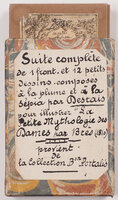 Suite complète
de 1 front. et 12 petits
dessins composés
à la plume et à la
sépia par Desrais
pour illustrer la
Petite Mythologie des
Dames par Blés
provient
de
la Collection Portalis